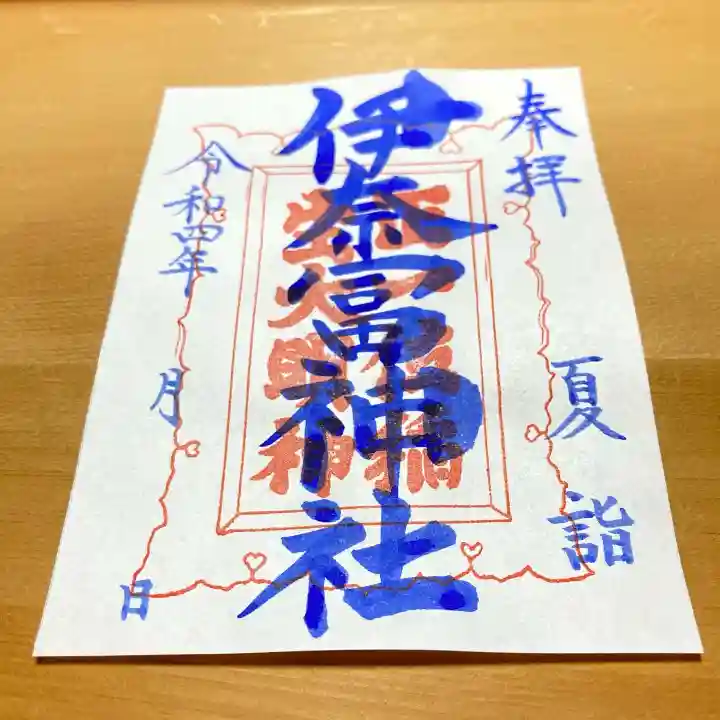 奉拝 夏詣
伊奈冨神社
令和四年 月 日